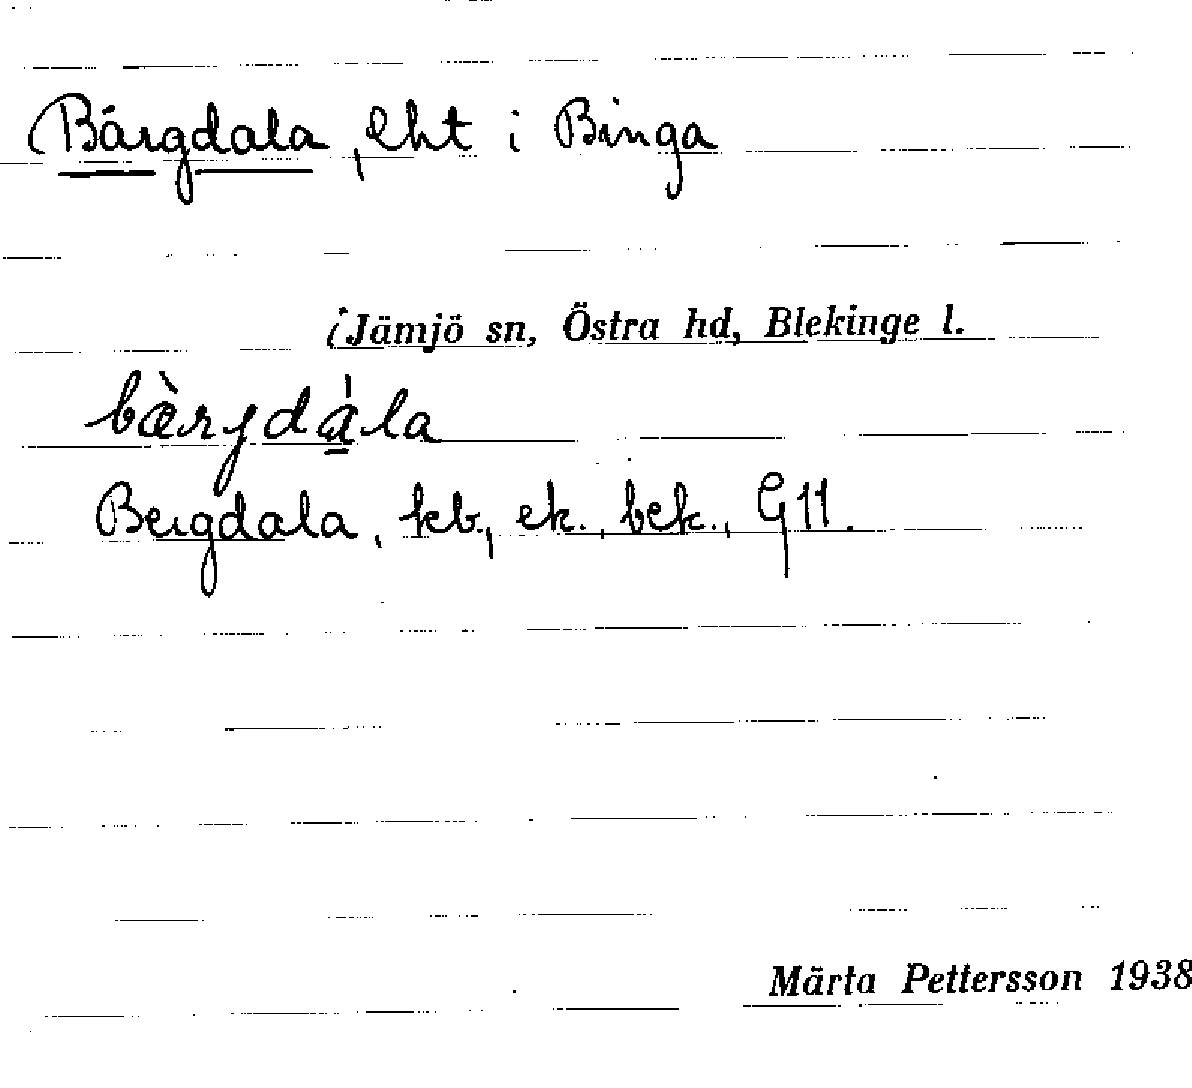 Bärgdala, lht i Binga
i Jämjö sn, Östra hd, Blekinge l.
bæ̀rjdá̱la
Bergdala, kb., ek., bek., G11.
Märta Pettersson 1938